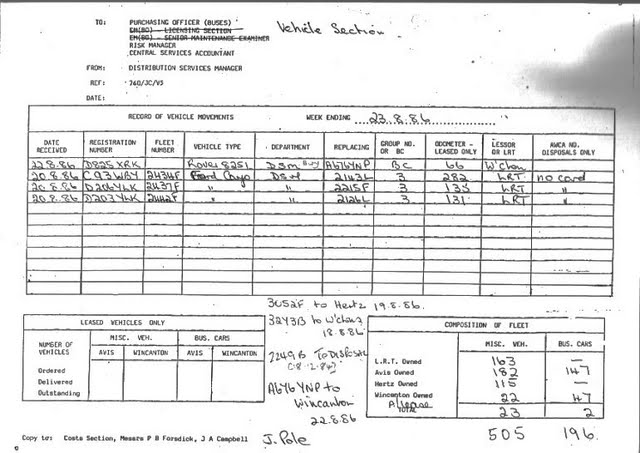 TO: PURCHASING OFFICER (BUSES)
EM(BO) - LICENSING SECTION
EM(BO) - SENIOR MAINTENANCE EXAMINER
RISK MANAGER
CENTRAL SERVICES ACCOUNTANT
Vehicle Section
FROM: DISTRIBUTION SERVICES MANAGER
REF: 740/JC/VS
DATE:
RECORD OF VEHICLE MOVEMENTS WEEK ENDING 23.8.86
DATE RECEIVED REGISTRATION NUMBER FLEET NUMBER VEHICLE TYPE DEPARTMENT REPLACING GROUP NO. OR BC ODOMETER - LEASED ONLY LESSOR OR LRT AWCA NO. DISPOSALS ONLY
22.8.86 D825XRK Rover 825i DSM A676YNP BC 66 W'Chan
20.8.86 C93WBY 2434F Ford Cargo DSM 2143L 3 282 LRT no card
20.8.86 D206YLK 2437F " " 2215F 3 135 LRT "
20.8.86 D203YLK 2442F " " 2126L 3 131 LRT "
3052F to Hertz 19.8.86.
3243B to W'Chan
18.8.86
2249B To Disposal
A676YNP to
Wincanton
22.8.86
LEASED VEHICLES ONLY
NUMBER OF VEHICLES MISC. VEH. BUS. CARS
AVIS WINCANTON AVIS WINCANTON
Ordered
Delivered
Outstanding
COMPOSITION OF FLEET
MISC. VEH. BUS. CARS
L.R.T. Owned 163 —
Avis Owned 182 147
Hertz Owned 115 —
Wincanton Owned 22 47
TOTAL 23 2
505 196.
Copy to: Costs Section, Messrs P B Forsdick, J A Campbell
J. Pole